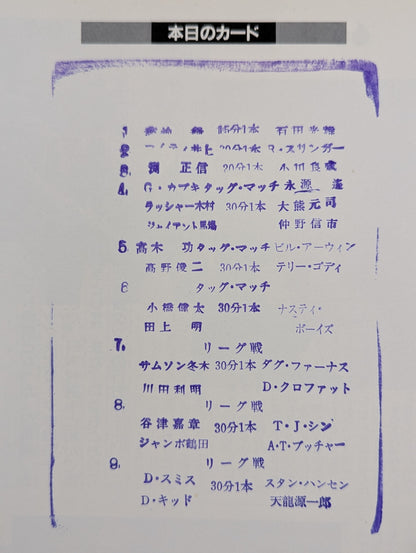 本日のカード
1 15分1本
2 マイティ井上 30分1本
3. 渕 正信 20分1本 小川良成
4. G・カブキ タッグ・マッチ 永源 遙
ラッシャー木村 30分1本 大熊元司
ジャイアント馬場 仲野信市
5 高木 功 タッグ・マッチ ビル・アーウィン
高野俊二 30分1本 テリー・ゴディ
6 タッグ・マッチ
小橋健太 30分1本 ナスティ・
田上 明 ボーイズ
7. リーグ戦
サムソン冬木 30分1本 ダグ・ファーナス
川田利明 D・クロファット
8. リーグ戦
谷津嘉章 30分1本 T・J・シン
ジャンボ鶴田 A・T・ブッチャー
9. リーグ戦
D・スミス 30分1本 スタン・ハンセン
D・キッド 天龍源一郎